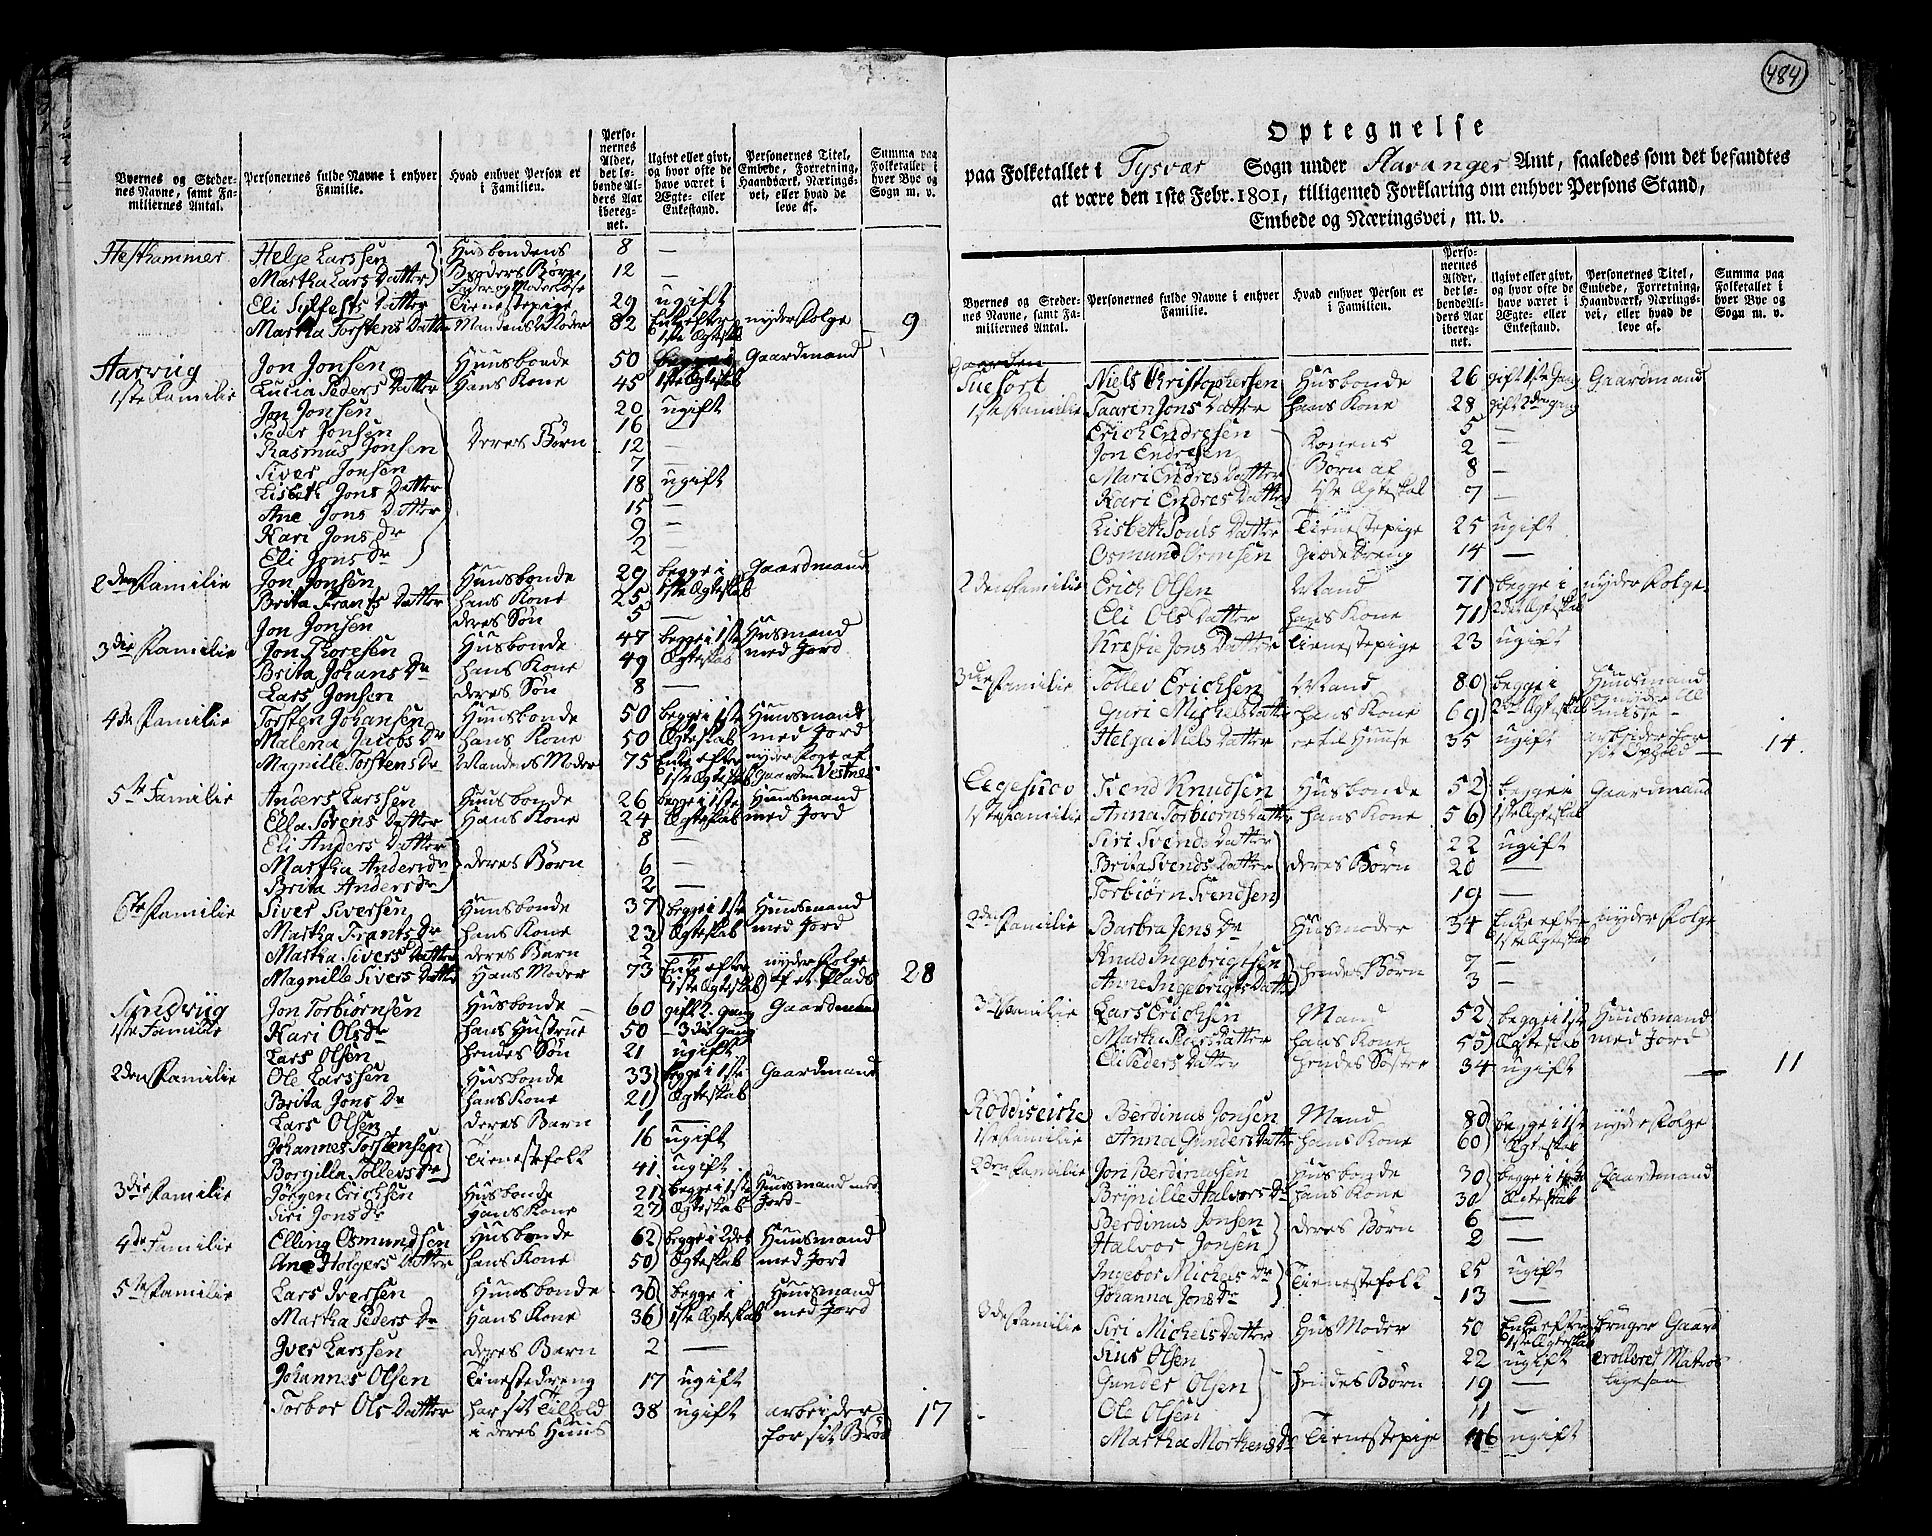 484
Byernes og Steder-
nes Navne, samt Fa-
miliernes Antal.
Personernes fulde Navne i enhver
Familie.
Hvad enhver Person er
i Familien.
Perso-
nernes
Alder,
det lø-
bende Al-
ders Aar
iberegnet.
Ugivt eller givt,
og hvor ofte de
have været i
Ægte- eller
Enkestand.
Personernes Titel,
Embede, Forretning,
Haandværk, Nærings-
vei, eller hvad de
leve af.
Summa paa
Folketallet i
hver Bye og
Sogn m. v.
Hesthammer Helje Larssen Husbondens 8 —
Martha Lars Datter Brøders Børn 12 —
Fader og Moderløse
Eli Sylfests Datter Tienestepige 29 ugift
Martha Torstens Datter Mandens Moder 82 Enke efter nyder Folge 9
1ste Ægteskab
Aarvug Jon Jonsen Huusbonde 50 begge i Gaardmand
1ste Familie Lucia Peders Datter Hans Kone 45 1ste Ægteskab
Jon Jonsen 20 ugift
Peder Jonsen 16
Rasmus Jonsen deres Børn 12 —
Siver Jonsen 7
Lisbeth Jons Datter 18 ugift
Ane Jons Datter 15 —
Kari Jons Dr 9 —
Eli Jons Dr 2 —
2den Familie Jon Jonsen Huusbonde 29 begge i Gaardmand
Brita Frants Datter hans Kone 25 1ste Ægteskab
Jon Jonsen deres Søn 5 —
3die Familie Jon Thoresen Husbonde 47 begge i 1ste Husmand
Brita Johans Dr hans Kone 49 Ægteskab med Jord
Lars Jonsen deres Søn 8 —
4de Familie Torsten Johansen Huusbonde 50 begge i 1ste Huusmand
Malena Jacobs Dr hans Kone 50 Ægteskab med Jord
Magnille Torstens Dr Mandens Moder 75 Enke efter nyder Folge af
1ste Ægteskab Gaarden Vestnes
5te Familie Anders Larssen Huusbonde 26 begge i 1ste Huusmand
Ella Sørens Datter Hans Kone 24 Ægteskab med Jord
Eli Anders Datter 8 —
Martha Anders dr deres Børn 6 —
Brita Anders dr 2 —
6te Familie Siver Siversen Huusbonde 37 begge i 1ste Huusmand
Martha Frants Dr hans Kone 23 Ægteskab med Jord
Martha Sivers Datter deres Barn 2 —
Magnille Sivers Datter Hans Moder 73 Enke efter nyder Folge 28
1ste Ægteskab af et Plads
Sundvug Jon Torbiørnsen Husbonde 60 gift 2. gang Gaardmand
1ste Familie Kari Ols dr hans Hustrue 50 — 3die gang
Lars Olsen hendes Søn 21 ugift
2den Familie Ole Larssen Husbonde 33 begge i 1ste Gaardmand
Brita Jons Dr hans Kone 21 Ægteskab
Lars Olsen deres Barn 1 —
Johannes Torstensen Tienestefolk 16 ugift
Borgilla Tollevs dr 41 ugift
3die Familie Jørgen Erichsen Husbonde 21 begge i 1ste Huusmand med
Siri Jons dr Hans Kone 27 Ægteskab Jord
4de Familie Elling Osmundsen Husbonde 62 begge i 2det Huusmand
Ane Holgers Datter hans Kone 50 Ægteskab med Jord
5te Familie Lars Iversen Huusbonde 36 begge i Huusmand
Martha Peders Dr Hans Kone 36 1ste Ægteskab med Jord
Iver Larssen deres Barn 2 —
Johannes Olsen Tienestedreng 17 ugift
Torbor Ols Datter har sit Tilhold 38 ugift arbeider 17
i deres Huus for sit Brød
Optegnelse
paa Folketallet i Tysvær Sogn under Stavanger Amt, saaledes som det befandtes
at være den 1ste Febr. 1801, tilligemed Forklaring om enhver Persons Stand,
Embede og Næringsvei, m. v.
Byernes og Steder-
nes Navne, samt Fa-
miliernes Antal.
Personernes fulde Navne i enhver
Familie.
Hvad enhver Person er
i Familien.
Perso-
nernes
Alder,
det lø-
bende Al-
ders Aar
ibereg-
net.
Ugivt eller givt,
og hvor ofte de
have været i
Ægte- eller
Enkestand.
Personernes Titel,
Embede, Forretning,
Haandværk, Nærings-
vei, eller hvad de
leve af.
Summa paa
Folketallet i
hver Bye og
Sogn m. v.
Gaarden
Tuefort Niels Kristophersen Husbonde 26 gift 1ste Gang Gaardmand
1ste Familie Taaren Jons Datter hans Kone 28 gift 2den gang
Erich Endresen 5 —
Jon Endresen Konens 2
Mari Endres Datter Børn af 8 —
Kari Endres Datter 1ste Ægteskab 7 —
Lisbeth Pouls Datter Tienestepige 25 ugift
Osmund Ormsen Giædedreng 14 —
2den Familie Erich Olsen Mand 71 begge i nyder Folge
Eli Ols Datter hans Kone 71 2det Ægteskab
Kristie Jons Datter tienestepige 23 ugift
3die Familie Tollev Erichsen Mand 80 begge i Huusmand
Guri Michels Datter hans Kone 69 2det Ægteskab nyder Al
misse
Helga Niels Datter er til Huuse 35 ugift arbeider for 14.
sit Ophold
Eegeskov Svend Knudsen Husbonde 52 begge i Gaardmand
1ste Familie Anna Torbiørns Datter hans Kone 56 1ste Ægteskab
Siri Svends Datter 22 ugift
Brita Svends Datter deres Børn 20 —
Torbiørn Svendsen 19 —
2den Familie Barbra Jens Dr Husmoder 34 Enke efter nyder Folge
1ste Ægteskab
Knud Ingebrigtsen hendes Børn 7 —
Anne Ingebrigts Datter 3 —
3die Familie Lars Erichsen Mand 52 begge i 1ste Huusmand
Martha Lars Datter hans Kone 55 Ægteskab med Jord
Eli Peders Datter hendes Søster 34 ugift 11
Røddiseiche Berdinus Jonsen Mand 80 begge i 1ste nyder Folge
1ste Familie Anna Gunders Datter hans Kone 60 Ægteskab
2den Familie Jon Berdinussen Husbonde 30 begge i 1ste Gaardmand
Brynilie Halvors Dr hans Kone 30 Ægteskab
Berdinus Jonsen deres Børn 6 —
Halvor Jonsen 2 —
Ingebor Michels Dr Tienestefolk 25 ugift
Johanna Jons Dr 13 —
3de Familie Siri Michels Datter Hus Moder 50 Enke efter bruger Gaard
1ste Ægteskab
Sius Olsen 22 ugift Enrolleret Matros
Gunder Olsen hendes Børn 19 — ligesaa
Ole Olsen 11 —
Martha Morthens Dr Tienestepige 46 ugift